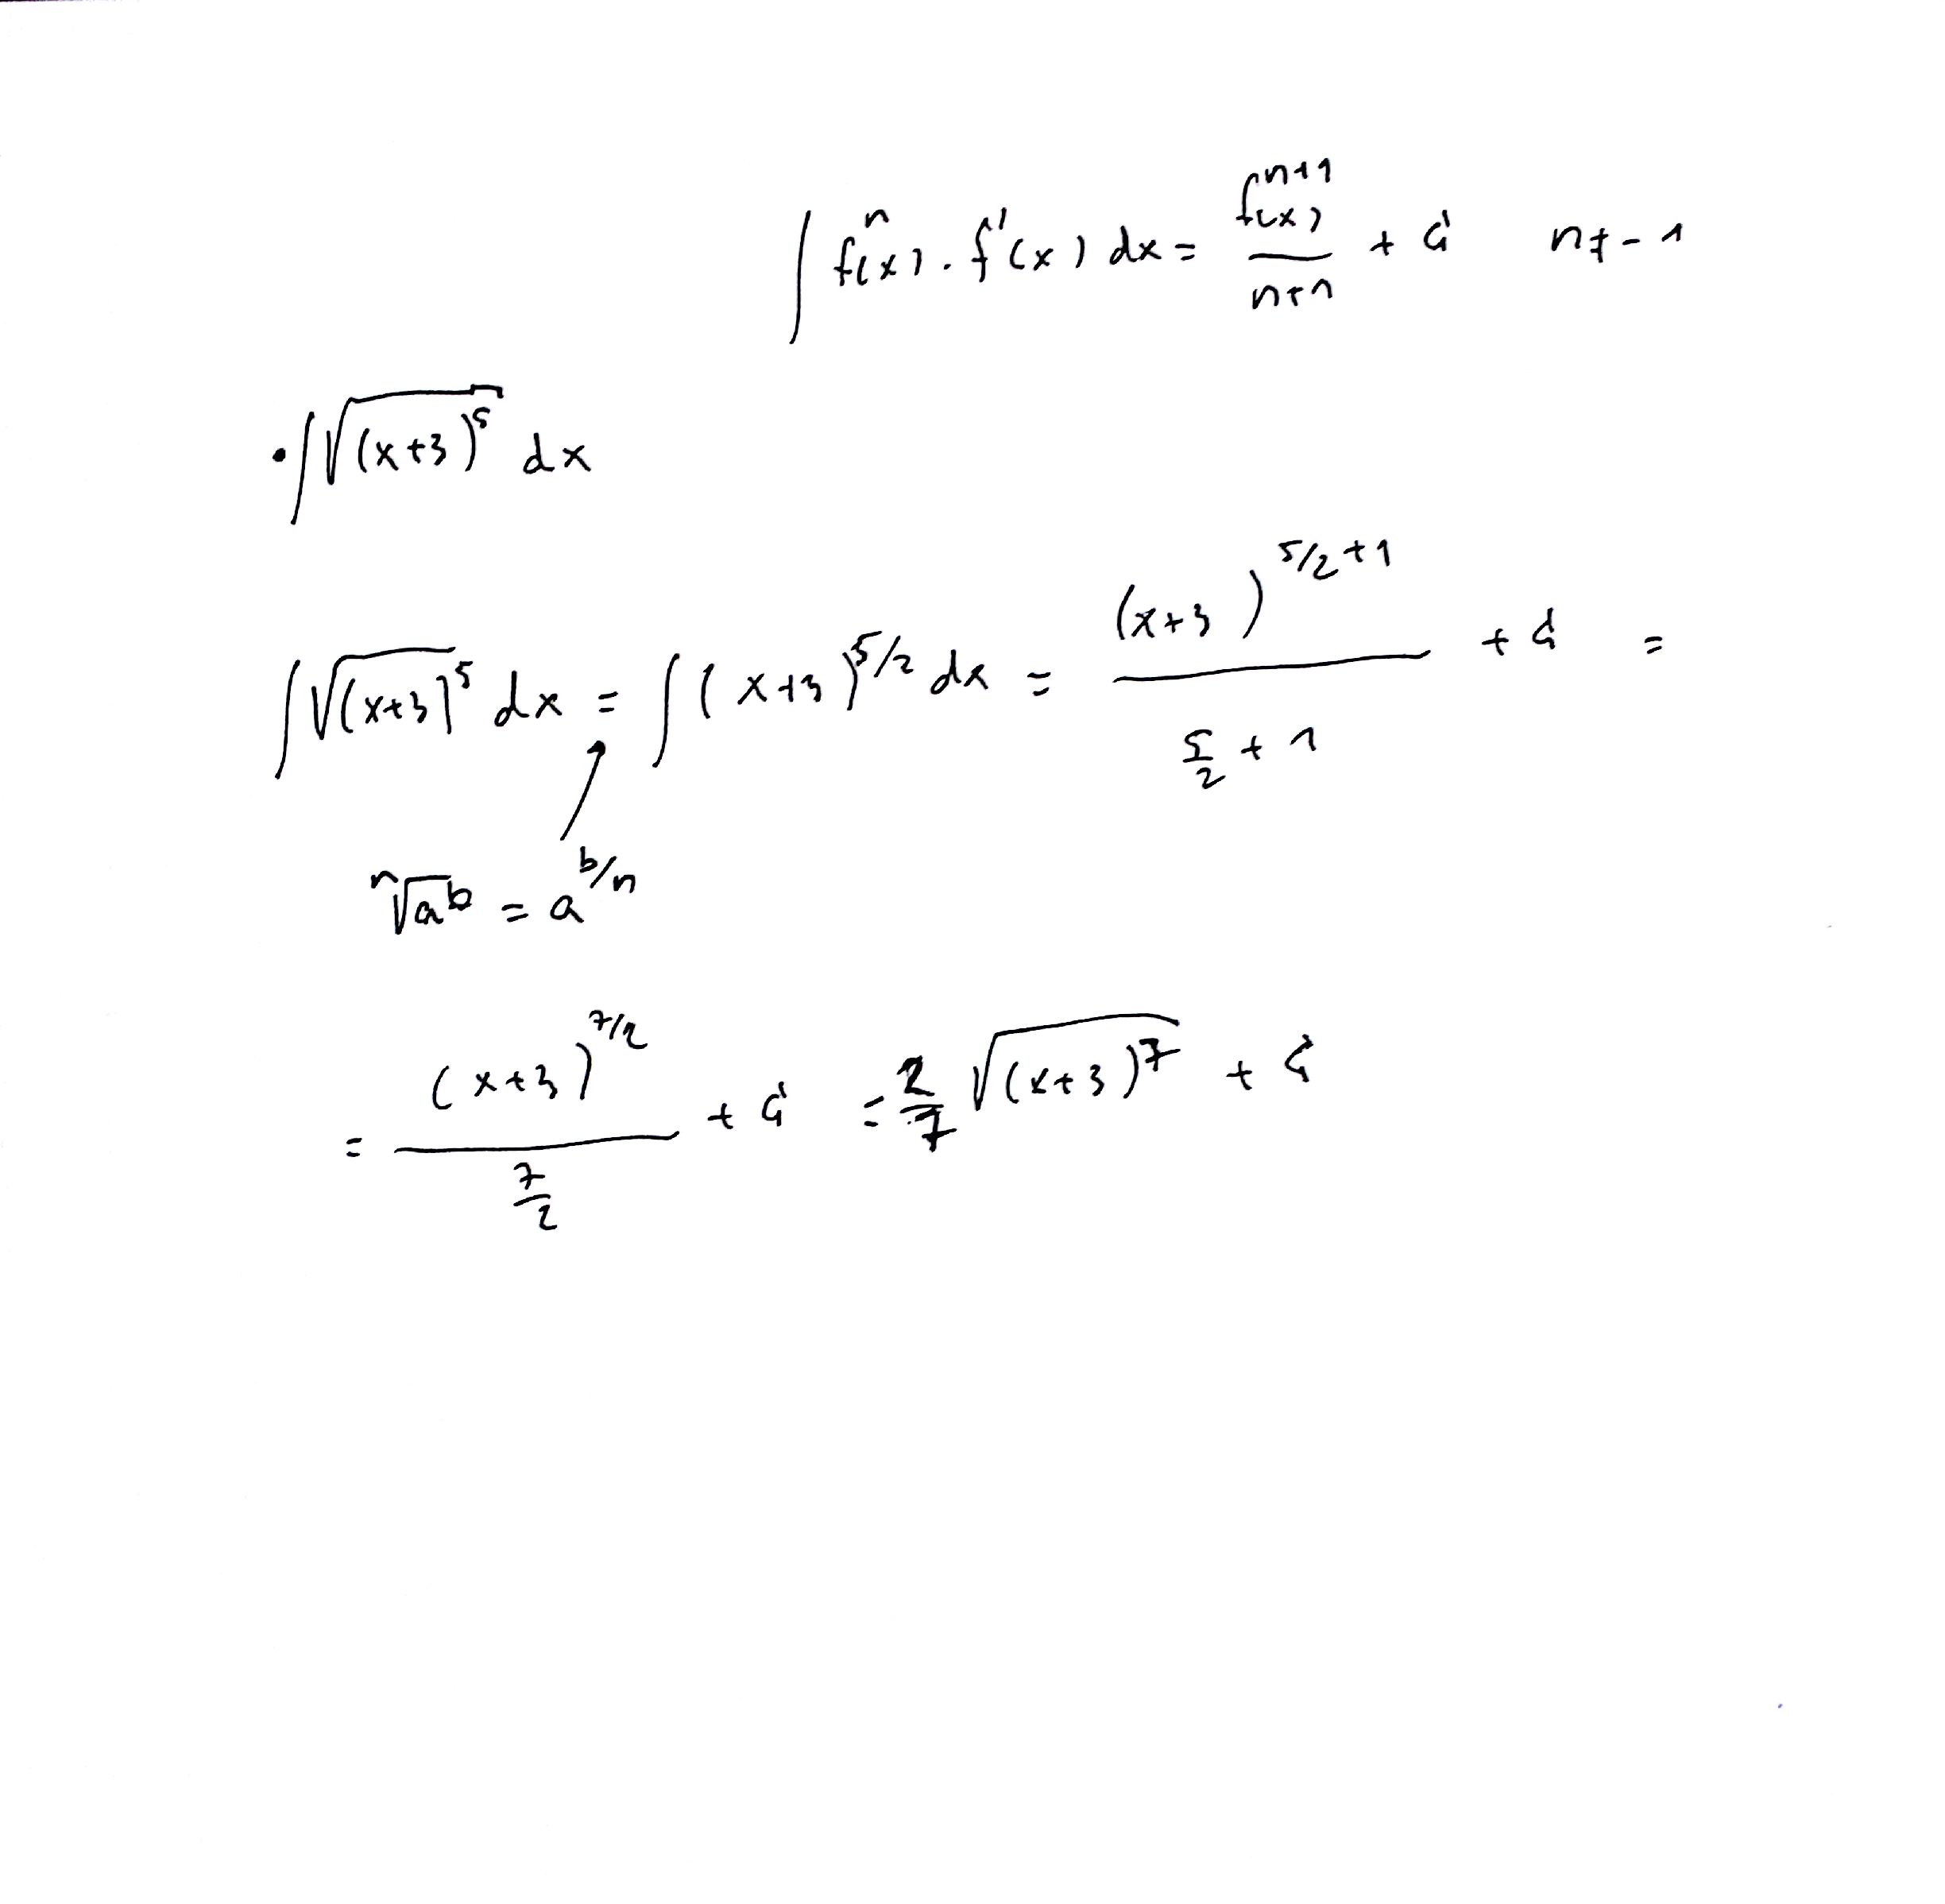 ∫ fⁿ(x) · f'(x) dx = fⁿ⁺¹(x) / (n+1) + C   n ≠ -1
• ∫ √((x+3)⁵) dx
∫ √((x+3)⁵) dx = ∫ (x+3)^(5/2) dx = (x+3)^(5/2+1) / (5/2 + 1) + C =
ⁿ√(a^b) = a^(b/n)
= (x+3)^(7/2) / (7/2) + C = 2/7 √((x+3)⁷) + C